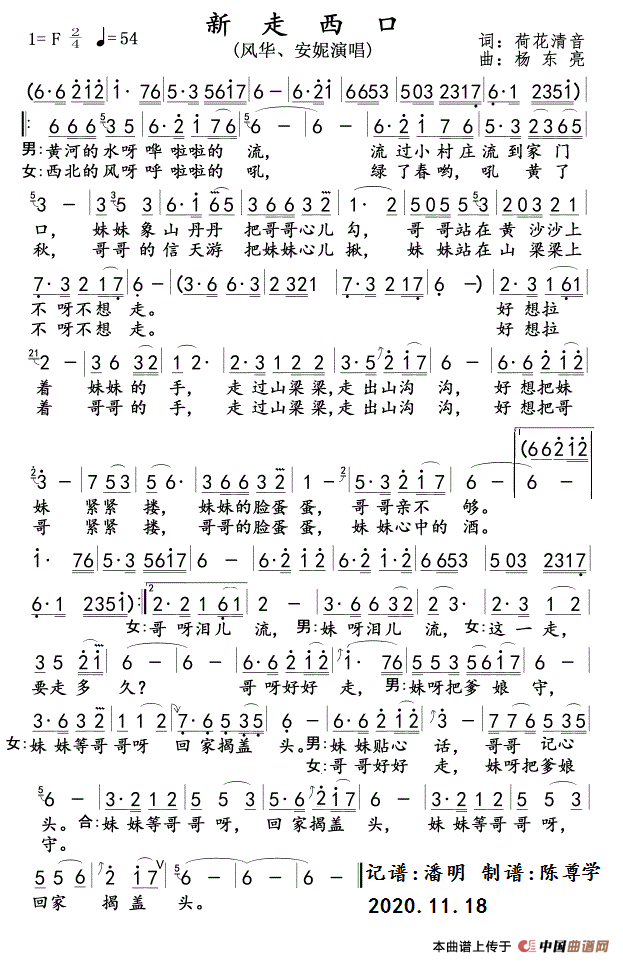 新 走 西 口
1= F 2/4 ♩=54
(风华、安妮演唱)
词: 荷花清音
曲: 杨 东 亮
(6·6 2i2 i· 76 5·3 56i7 6·2 i2 6653 503 2317 6·1 2351)
男:黄河的水呀哗 啦啦的 流, 流 过小村庄流到家 门
女:西北的风呀呼 啦啦的 吼, 绿 了春哟,吼 黄了
口, 妹妹 象山丹丹 把哥哥心儿 勾, 哥 哥站在黄 沙沙上
秋, 哥哥 的信天游 把妹妹心儿 揪, 妹 妹站在山 梁梁上
7·3 2 17 6 - (3·6 63 2 2321 7·32 17 6 -) 2·3 161
不 呀不想 走。 好 想拉
不 呀不想 走。 好 想拉
2 - 3 6 32 1 2· 2·3 212 3·5 2i7 6 - 6·2 2i2
着 妹妹 的 手, 走 过山梁 梁,走 出山沟 沟, 好 想把妹
着 哥哥 的 手, 走 过山梁 梁,走 出山沟 沟, 好 想把哥
3 - 7 53 5 6· 3 66 32 1 - 5·3 2i7 6 - 6 -
1.(66 2i2
妹 紧紧 搂, 妹妹的脸蛋 蛋, 哥 哥亲不 够。
哥 紧紧 搂, 哥哥的脸蛋 蛋, 妹 妹心中的 酒。
i· 76 5·3 56i7 6 - 6·2 i2 6·2 i2 6 653 503 2317
6·1 2351) :‖ 2. 2·2 161 2 - 2·2 161 2 - 2·3 1 2
女:哥 呀泪儿 流, 男:妹 呀泪儿 流, 女:这 一 走,
3 5 2 i 6 - 6 - 6·2 2i2 i· 76 553 5617
要走 多 久? 哥 呀好好 走, 男:妹呀把爹 娘 守,
3·6 32 1 1 2 7·6 535 6· 6·2 2i2 3 - 776 563
女:妹 妹等哥 哥呀 回 家揭盖 头。男:妹 妹贴心 话, 哥哥 记心
女:哥 哥好好 走, 妹呀把爹娘
6 - 3·2 12 5 5 3 5·6 2i7 6 - 3·2 12 5 5 3
头。合:妹 妹等哥 哥 呀, 回 家揭盖 头, 妹 妹等哥 哥 呀,
守。
5 5 6 2· i 7 V 6 - 6 - 6 - ‖
回家 揭 盖 头。
记谱:潘明 制谱:陈尊学
2020.11.18
本曲谱上传于 中国曲谱网